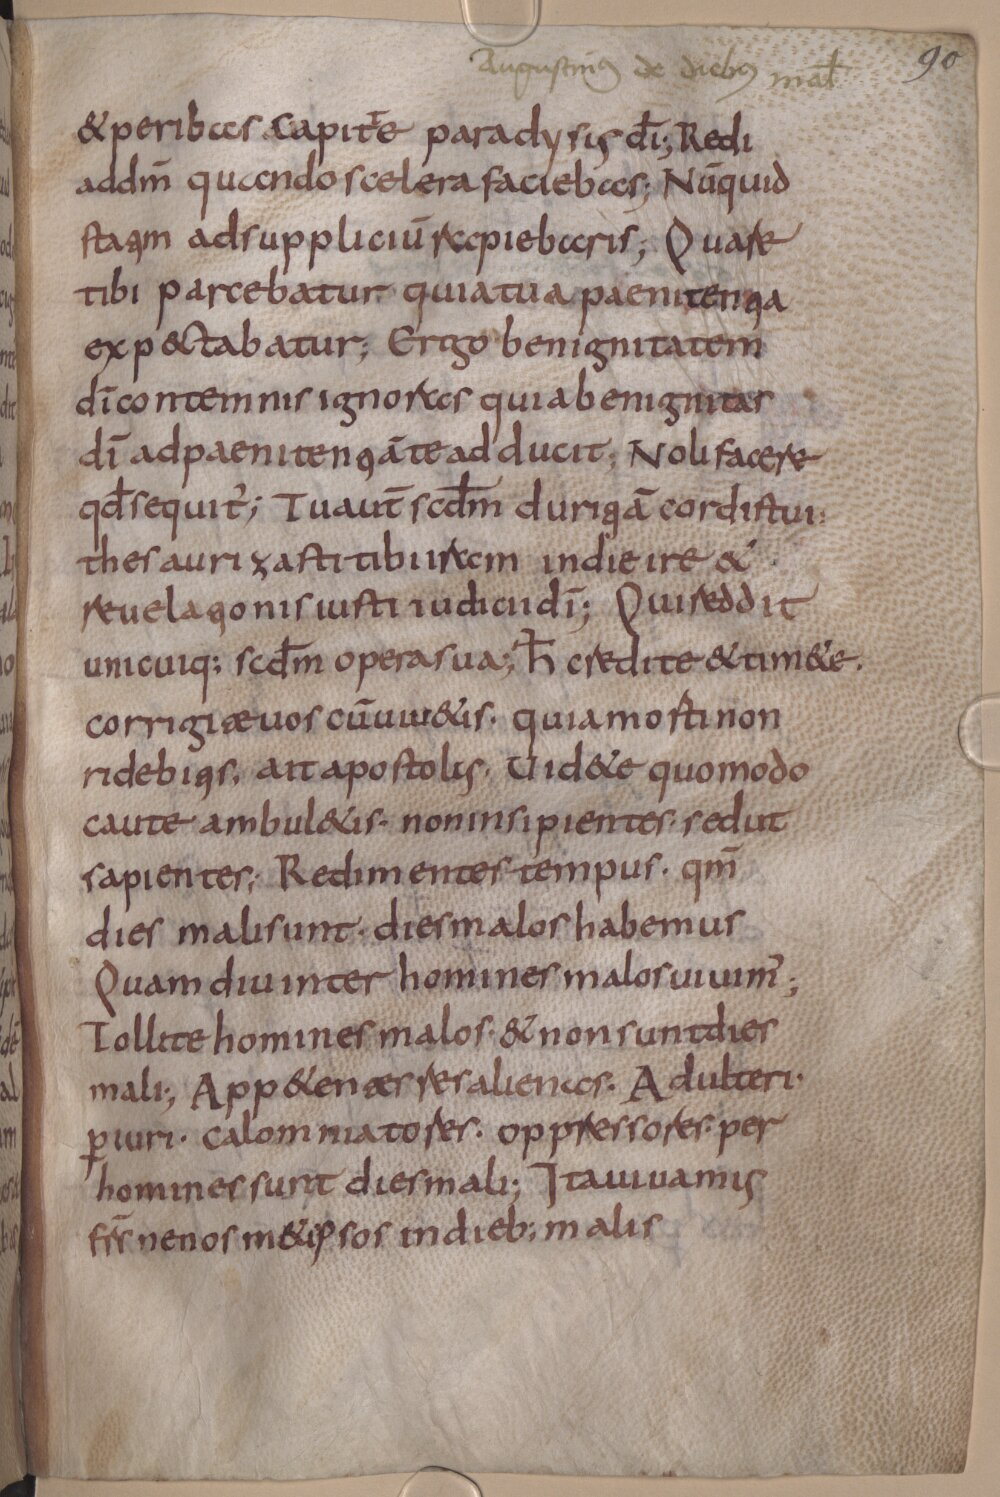 Augustinus de diebus mal̄
90
& peribas capit̄e paradysis dī; Redi
addm̄ quando scelera faciebas; Nūquid
statim ad suppliciū rapiebaris; Quare
tibi parcebatur quia tua paenitentia
expectabatur; Ergo benignitatem
dī contemnis ignoras quia benignitas
dī ad paenitentiā te adducit; Noli facere
qđ sequit̄; Tu aut̄ scđm duritiā cordis tui
thesaurizasti tibi iram in die ire &
revelationis iusti iudicii dī; Qui reddit
unicuiq; scđm opera sua; h̄ credite & tim&e.
corrigite vos cū viv&is. quia mosti non
ridebitis. ait apostolus. Uid&e quomodo
caute ambul&is. non insipientes. sed ut
sapientes; Redimentes tempus. qm̄
dies mali sunt. dies malos habemus
Quamdiu inter homines malos vivim̄;
Tollite homines malos. & non sunt dies
mali; App&entes res alienas. Adulteri.
ꝑiuri. calomniatores. oppressores. per
homines sunt dies mali; Ita vivamus
fr̄s ne nos m&ipsos in dieb; malis